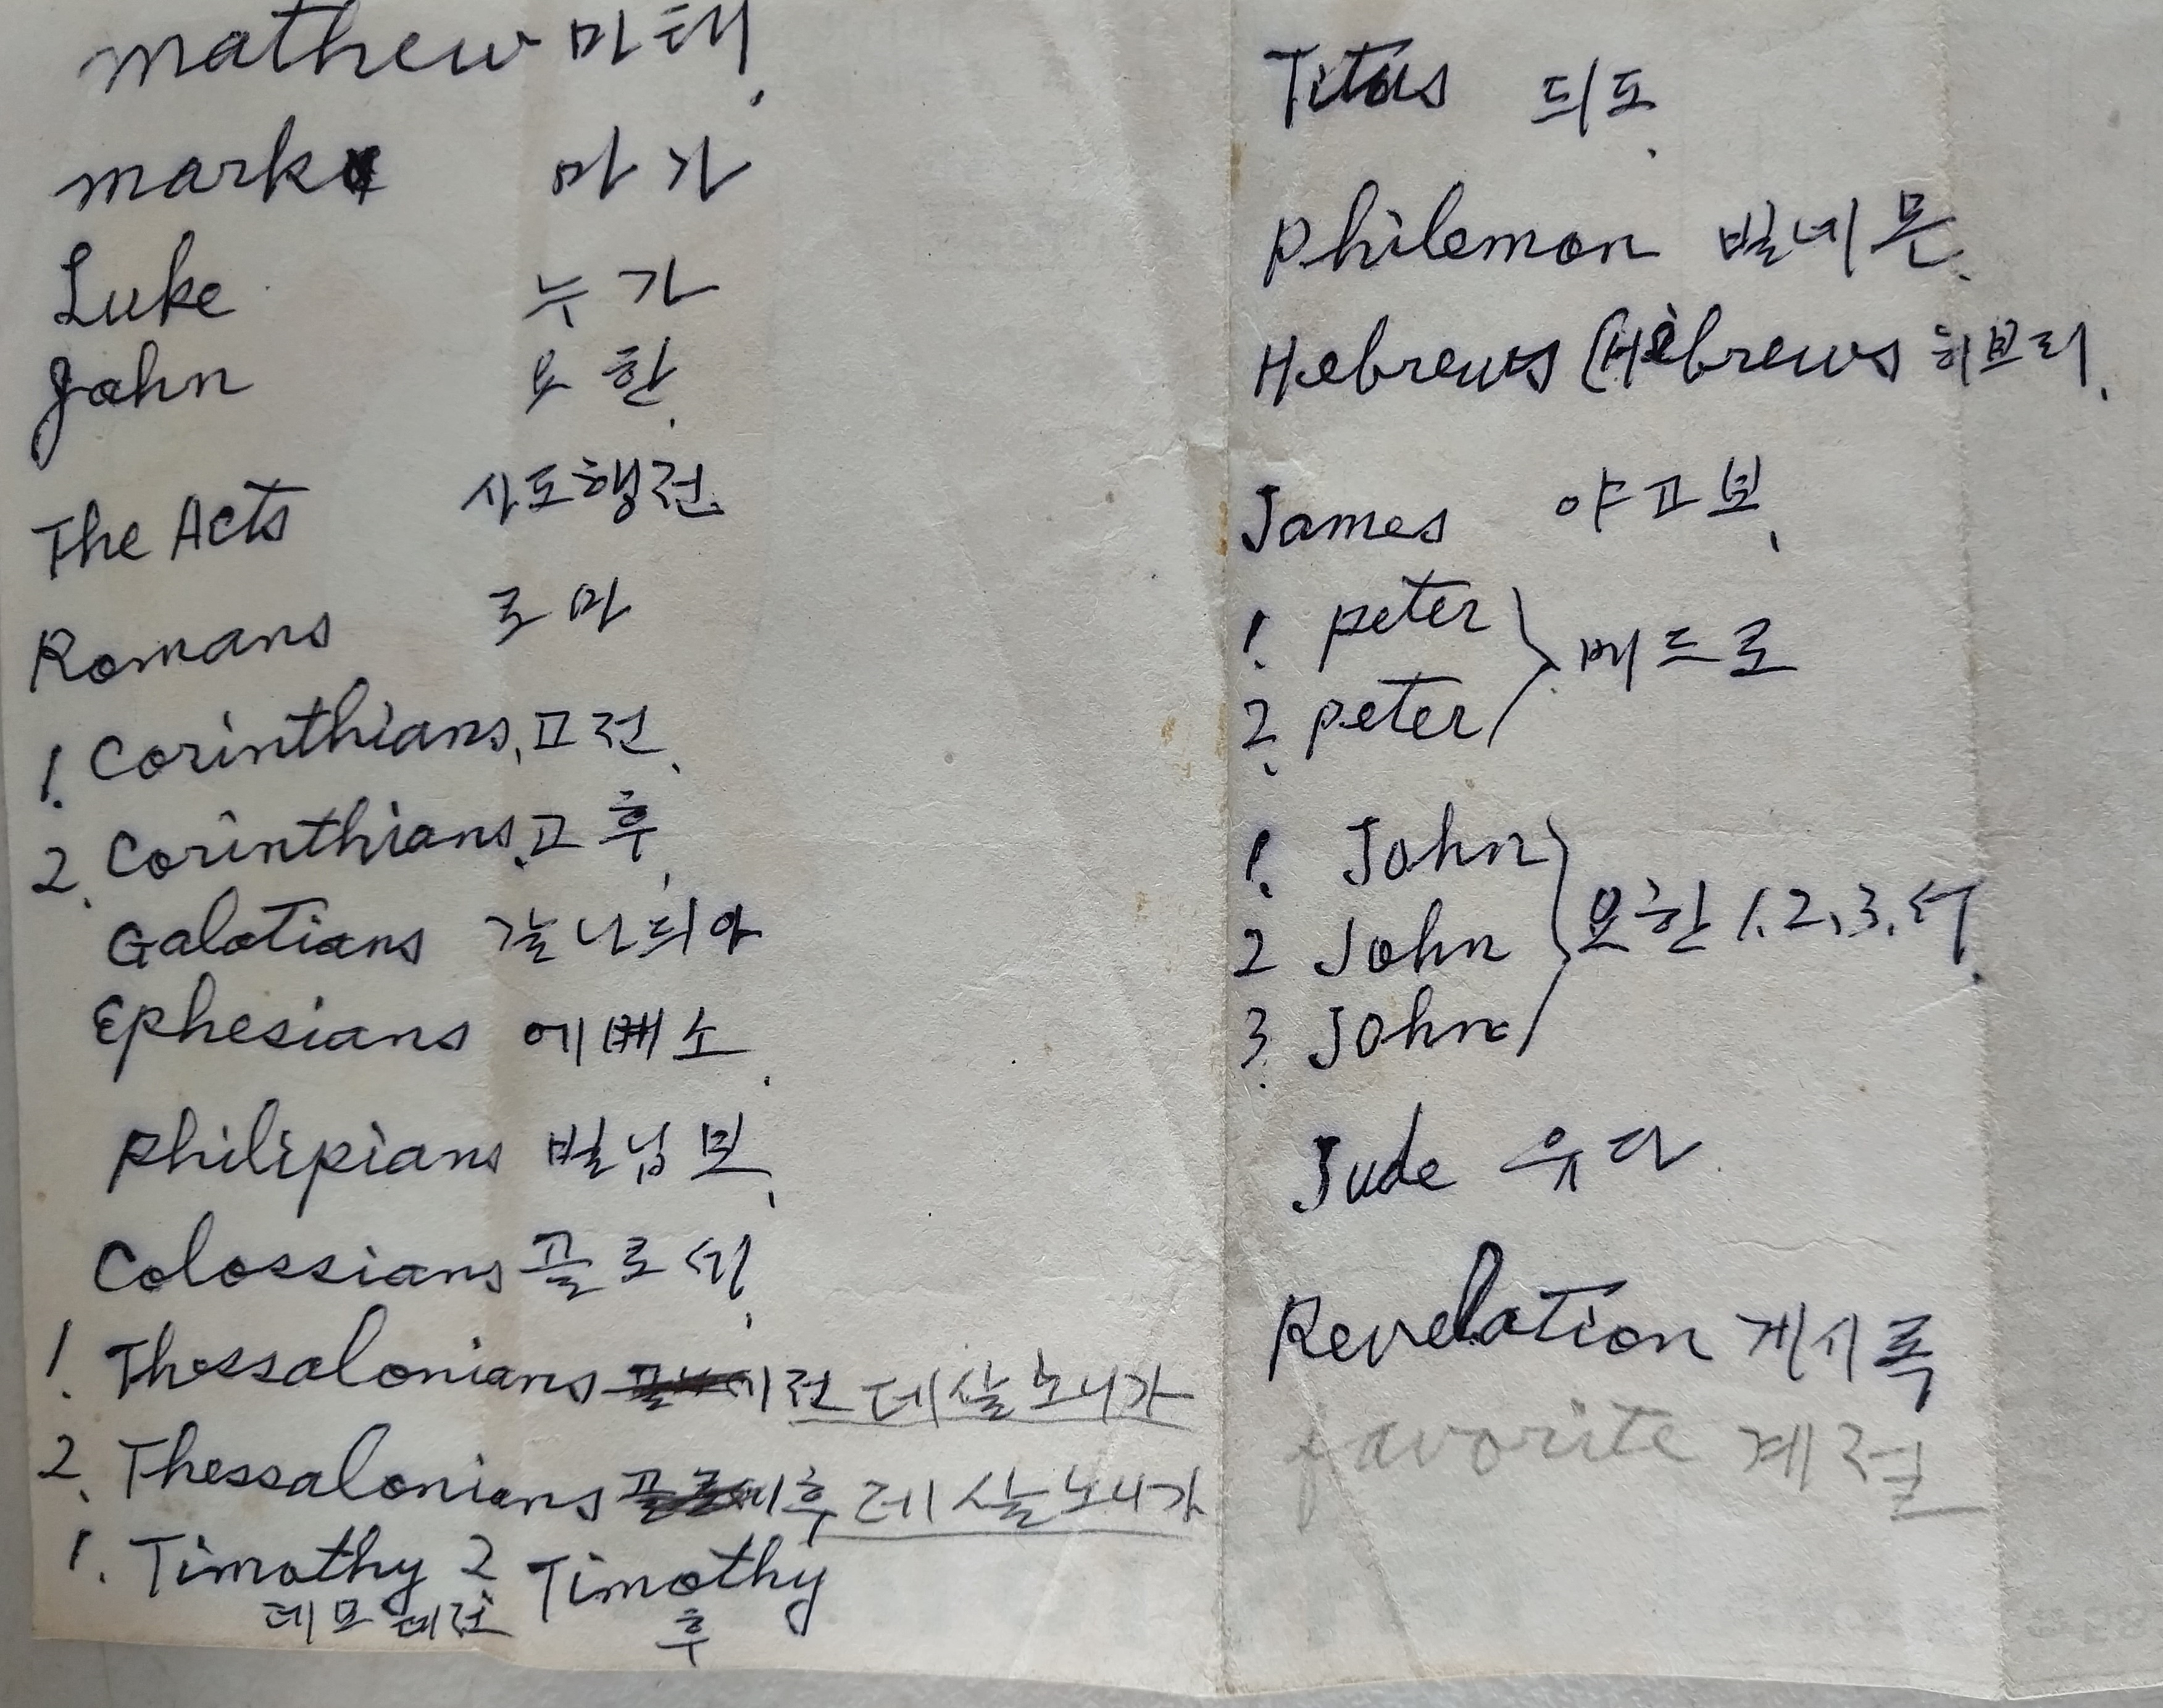 mathew 마태.
mark 마가
Luke 누가
John 요한.
The Acts 사도행전.
Romans 로마
1. Corinthians, 고전.
2. Corinthians. 고후.
Galatians 갈나듸아
Ephesians 에베소.
philipians 빌닙보.
Colossians 골로세.
1. Thessalonians 전 데살노니가
2. Thessalonians 후 데살노니가
1. Timothy 2 Timothy
데모데전 후
Titus 듸도.
philemon 빌네몬.
Hebrews (Hebrews 히브리.
James 야고보.
1. peter
2. peter
베드로
1. John
2 John
3. John
요한 1.2,3.서.
Jude 유다.
Revelation 게시록
favorite 계절